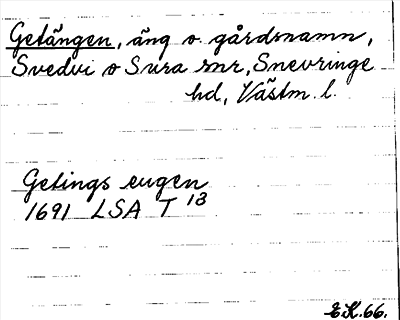 Getängen, äng o. gårdsnamn,
Svedvi o Sura snr, Snevringe
hd, Västm. l.
Getings eugen
1691 LSA T 13
E.K. 66.